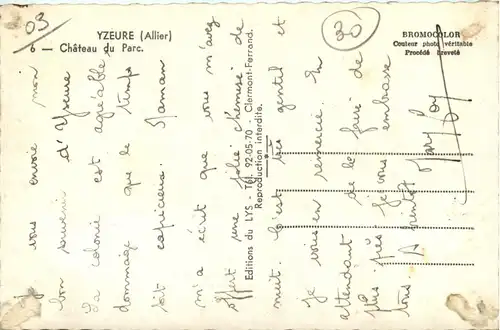 03
YZEURE (Allier)
6 — Château du Parc.
03
BROMOCOLOR
Couleur photo véritable
Procédé Breveté
Editions du LYS - Tél. 92-05-70 - Clermont-Ferrand.
Reproduction interdite.
Je vous envoie mon
bon souvenir d'Yzeure
La colonie est agréable
dommage que le temps
soit capricieux Maman
m'a écrit que vous m'avez
offert une jolie chemise de
nuit. C'est très gentil et
je vous en remercie. En
attendant de le faire de
plus près je vous embrasse
tous. A bientôt